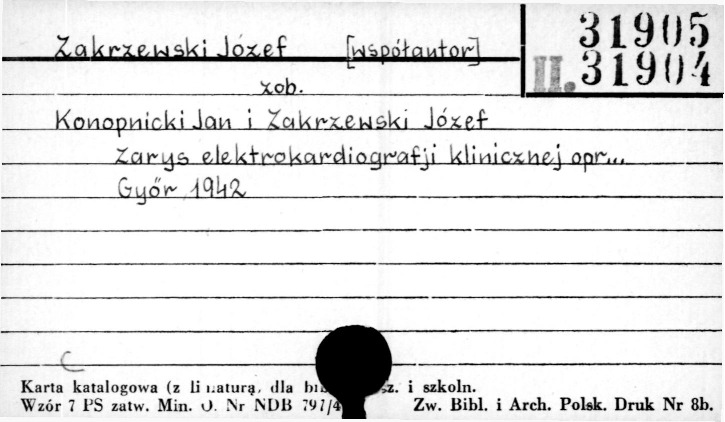 Zakrzewski Józef [współautor]
31905
II. 31904
zob.
Konopnicki Jan i Zakrzewski Józef
Zarys elektrokardiografji klinicznej opr...
Győr 1942
C
Karta katalogowa (z li naturą, dla z. i szkoln.
Wzór 7 PS zatw. Min. O. Nr NDB 797/4 Zw. Bibl. i Arch. Polsk. Druk Nr 8b.